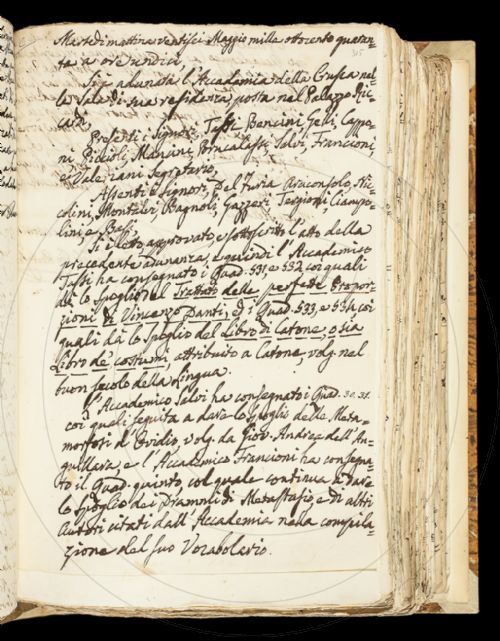 315
Martedì mattina ventisei Maggio mille ottocento quaran-
ta a ore undici.
Si è adunata l'Accademia della Crusca nel-
le Sale di sua residenza, posta nel Palazzo Ric-
cardi,
Presenti i Signori, Tassi, Bencini, Gelli, Cappo-
ni, Piccioli, Mancini, Brucalassi, Salvi, Francioni,
e Valeriani Segretario,
Assenti i Signori, Del Furia Arciconsolo, Nic-
colini, Montalvi, Bagnoli, Gazzeri, Targioni, Ciampo-
lini, e
Si è letto, approvato, e sottoscritto l'atto della
precedente adunanza, e quindi l'Accademico
Tassi ha consegnato i Quad. 531, e 532, coi quali
dà lo Spoglio del Trattato delle perfette Propor-
zioni di Vincenzo Danti, ed i Quad. 533, e 534, coi
quali dà lo Spoglio del Libro di Catone, o sia
Libro de' costumi, attribuito a Catone, volg. nel
buon secolo della Lingua.
L'Accademico Salvi ha consegnato i Quad. 30. 31.
coi quali seguita a dare lo Spoglio delle Meta-
morfosi d'Ovidio, volg. da Giov. Andrea dell'An-
guillara, e l'Accademico Francioni ha consegna-
to il Quad. quinto, col quale continua a dare
lo Spoglio dei Drammi di Metastasio, e di altri
Autori citati dall'Accademia nella compila-
zione del suo Vocabolario.